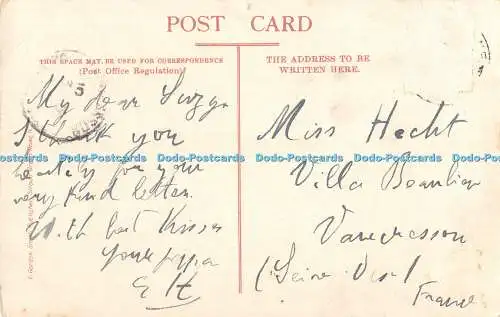 POST CARD
THIS SPACE MAY BE USED FOR CORRESPONDENCE
(Post Office Regulation)
THE ADDRESS TO BE
WRITTEN HERE.
My dear
I thank you
heartily for your
very kind letter.
With best kisses
your
E H
Miss Hecht
Villa Beaulieu
Vaucresson
(Seine
France
Dodo-Postcards Dodo-Postcards Dodo-Postcards Dodo-Postcards Dodo-Postcards